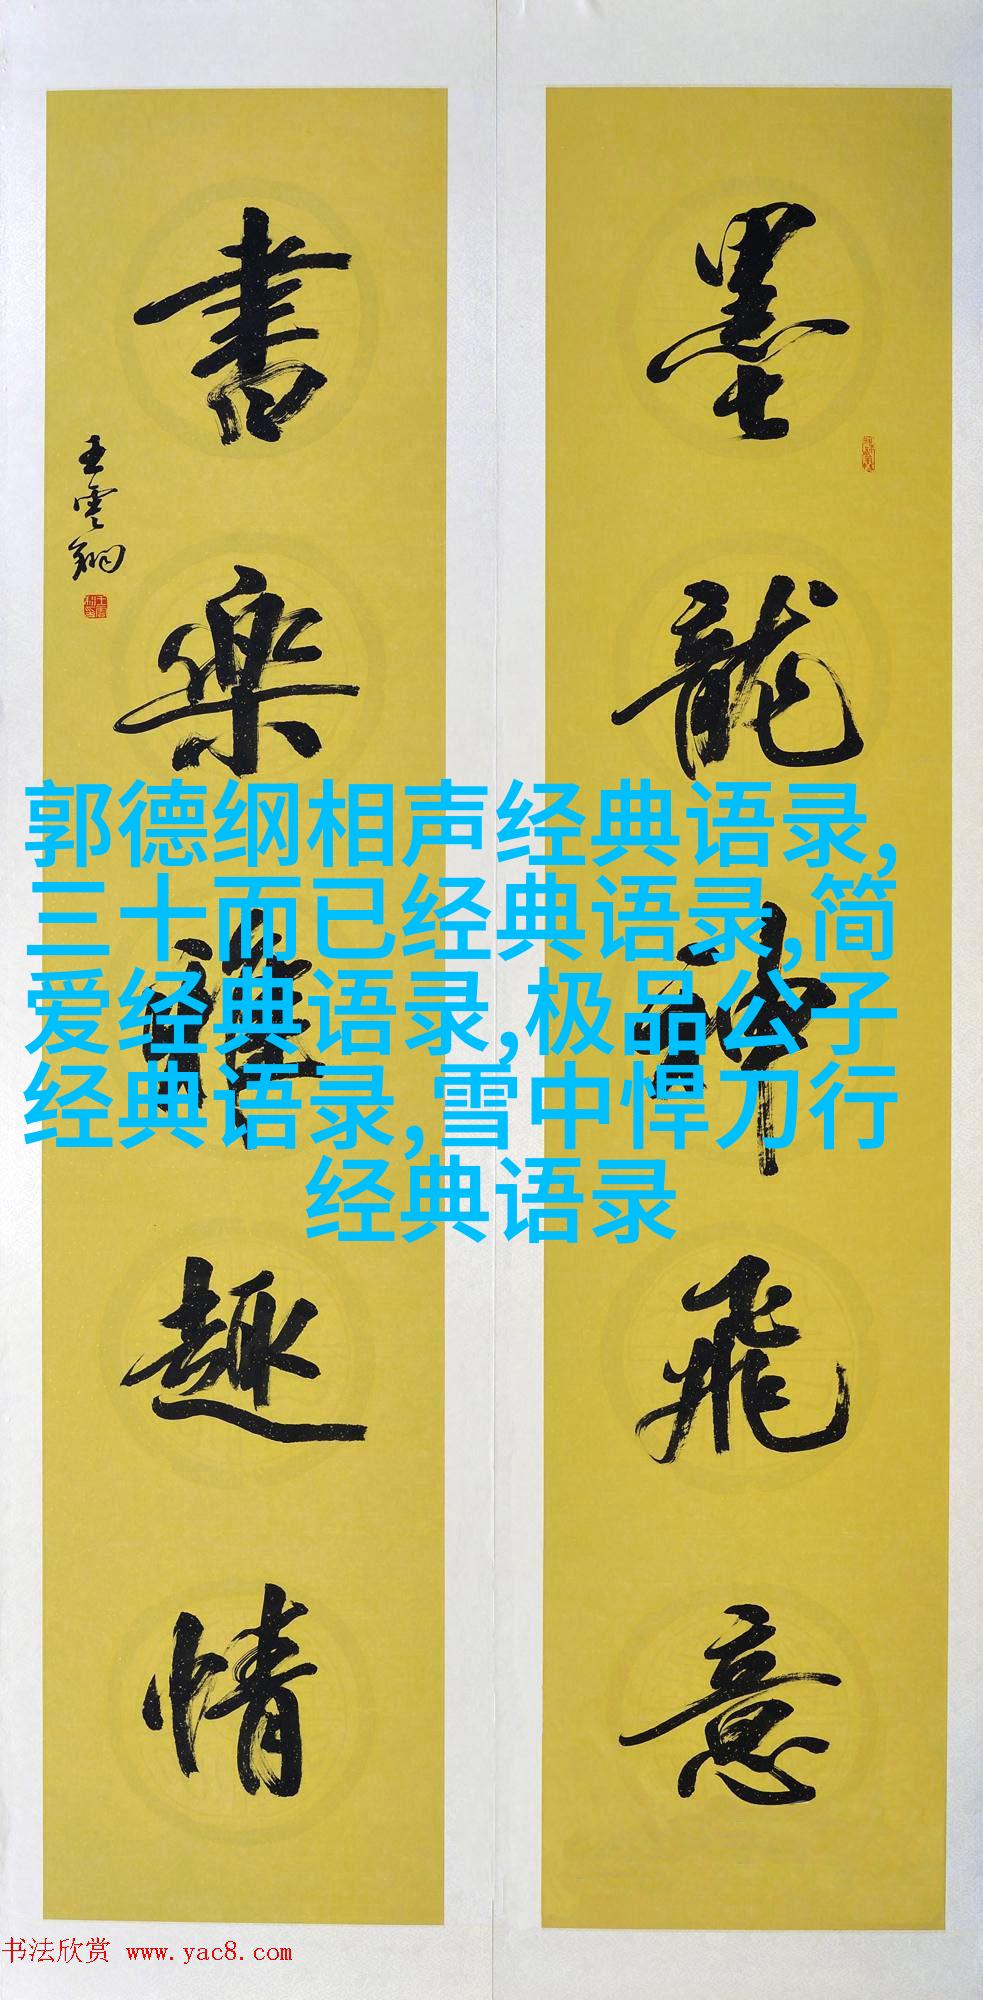 墨龍神飛意
書樂禪趣情
王雲翔
郭德纲相声经典语录,
三十而已经典语录,简
爱经典语录,极品公子
经典语录,雪中悍刀行
经典语录
书法欣赏 www.yac8.com